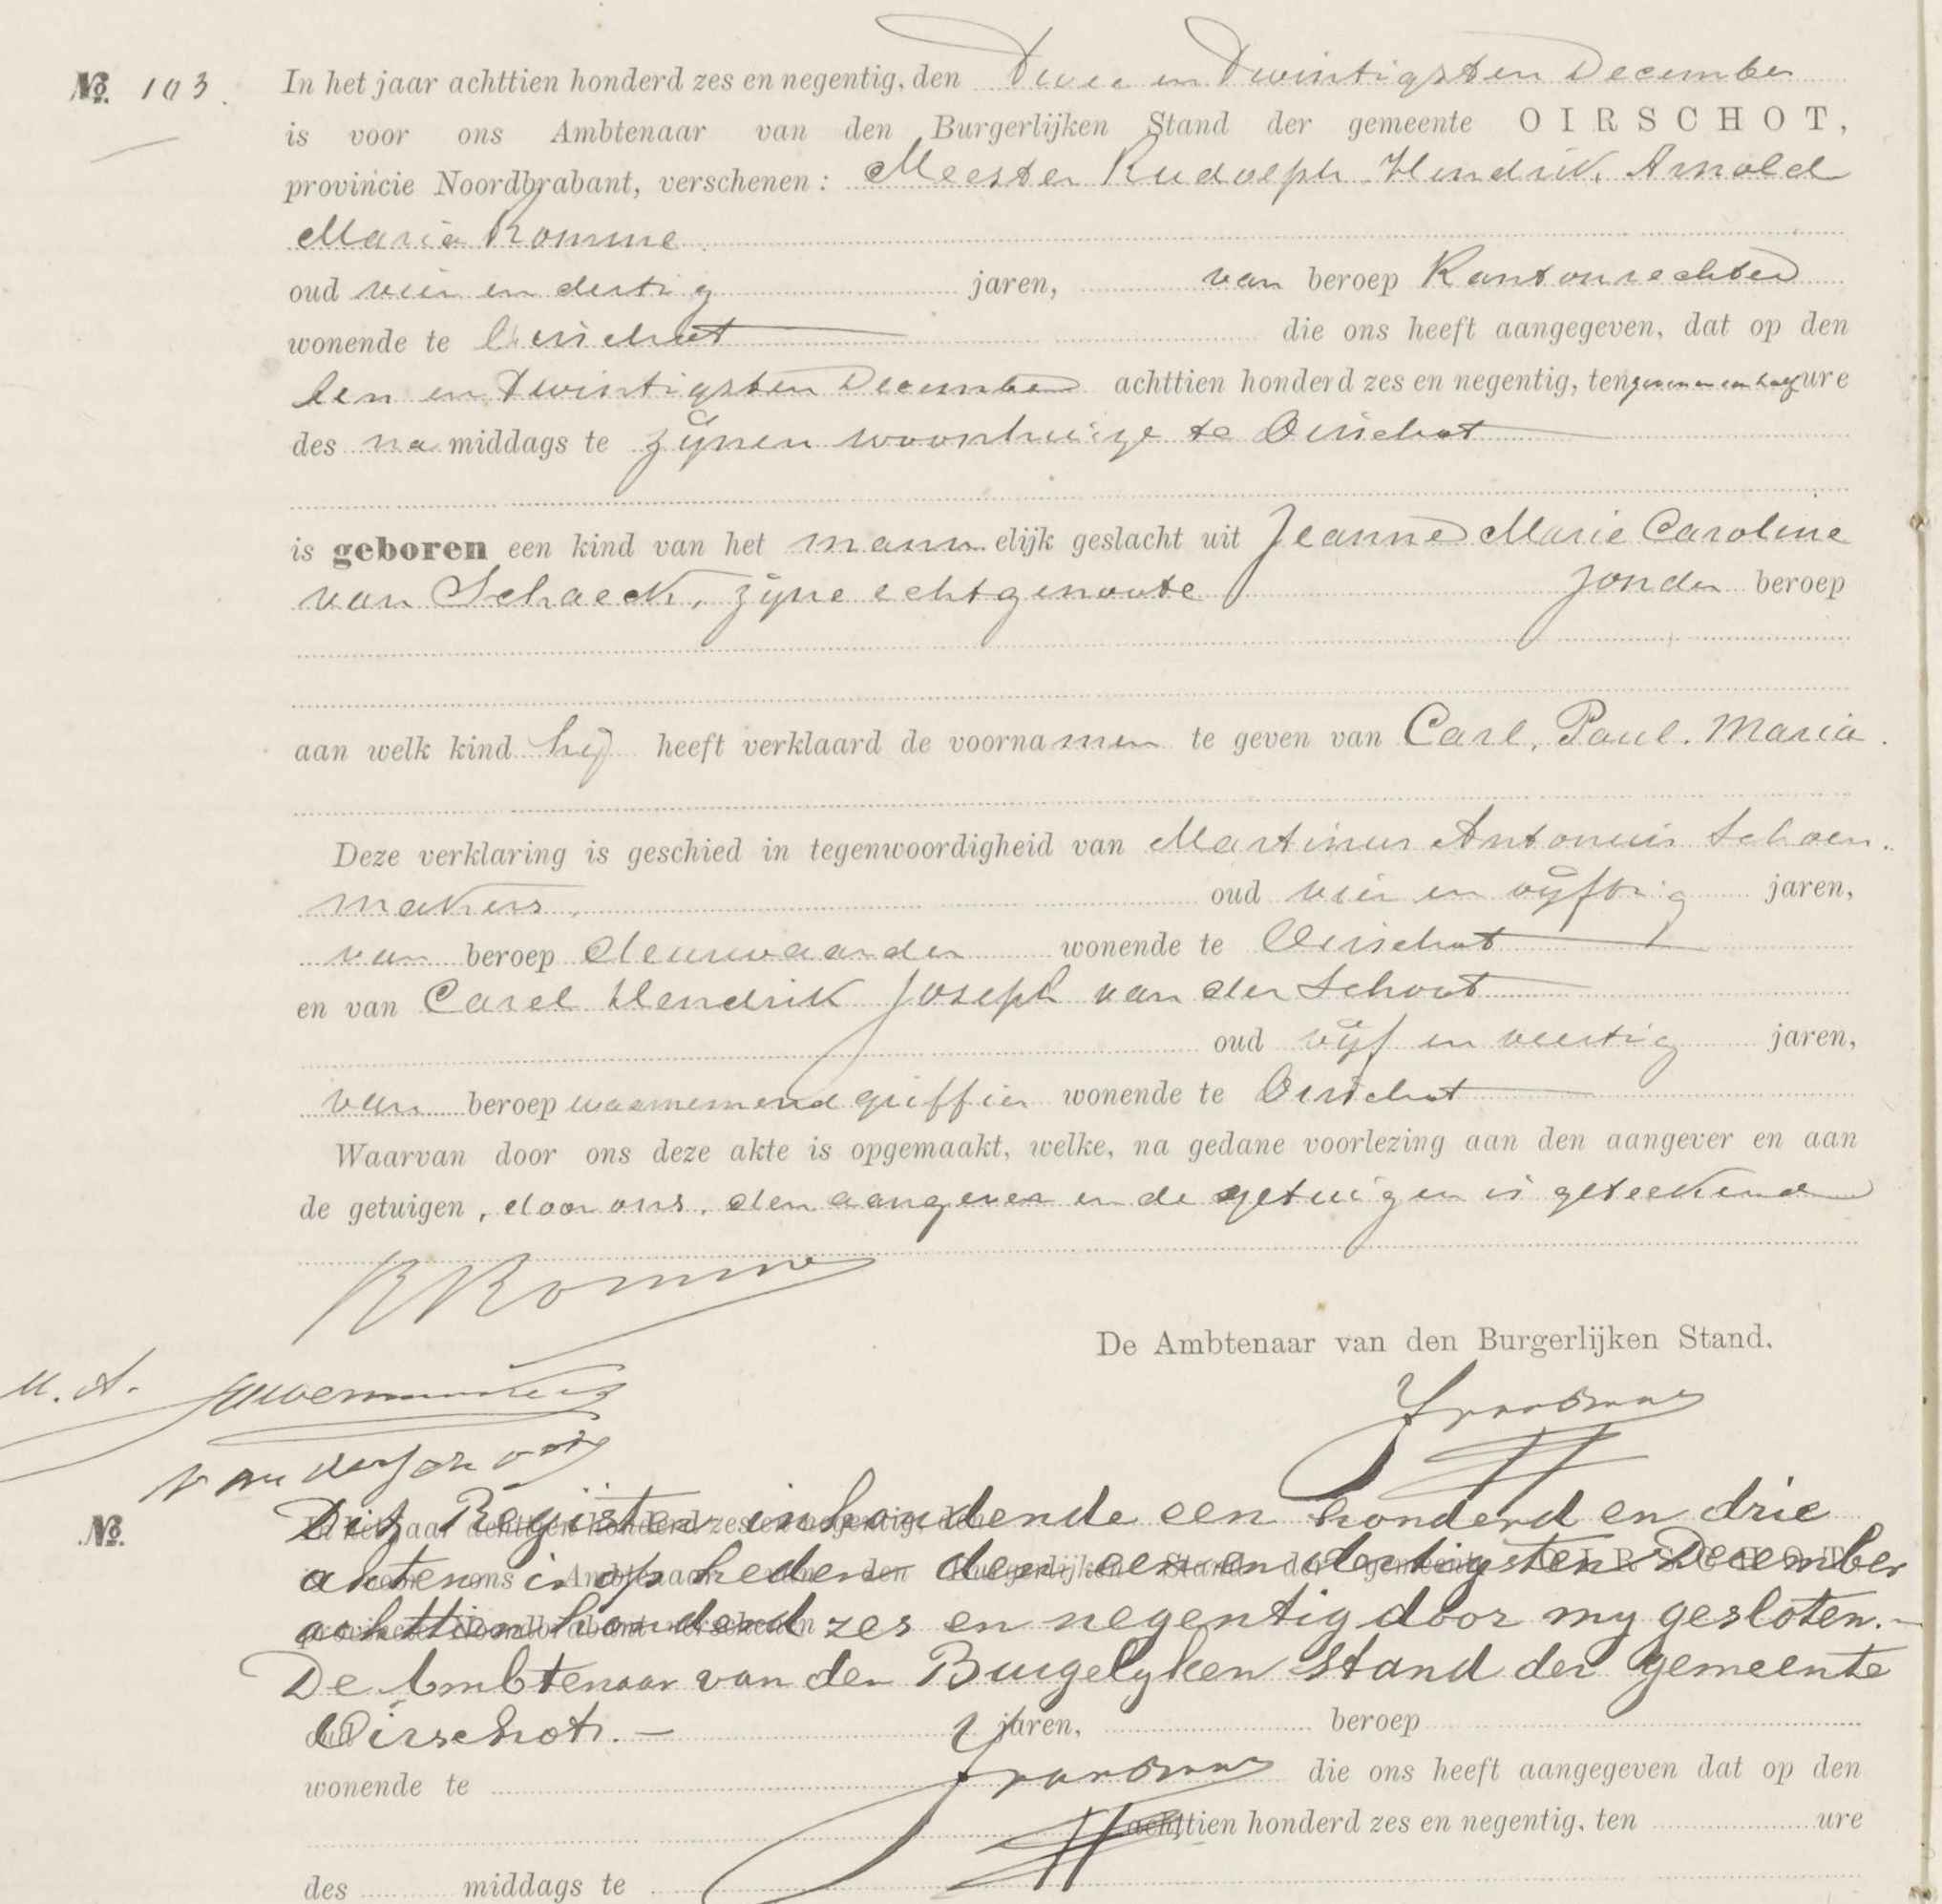 No. 103.
In het jaar achttien honderd zes en negentig, den Twee en Twintigsten December
is voor ons Ambtenaar van den Burgerlijken Stand der gemeente OIRSCHOT,
provincie Noordbrabant, verschenen: Meester Rudolph Hendrik Arnold
Maria Romme
oud vier en dertig jaren, van beroep Kantonrechter
wonende te Oirschot die ons heeft aangegeven, dat op den
een en Twintigsten December achttien honderd zes en negentig, ten zeven en een half ure
des na middags te zijnen woonhuize te Oirschot
is geboren een kind van het mannelijk geslacht uit Jeanne Marie Caroline
van Schaeck, zijne echtgenoote zonder beroep
aan welk kind hij heeft verklaard de voornamen te geven van Carl, Paul. Maria.
Deze verklaring is geschied in tegenwoordigheid van Martinus Antonius Schoen-
makers, oud vier en vijftig jaren,
van beroep deurwaarder wonende te Oirschot
en van Carel Hendrik Joseph van der Schoot
oud vijf en veertig jaren,
van beroep waarnemend griffier wonende te Oirschot
Waarvan door ons deze akte is opgemaakt, welke, na gedane voorlezing aan den aangever en aan
de getuigen, door ons, den aangever en de getuigen is geteekend
R Romme
De Ambtenaar van den Burgerlijken Stand.
M. A. Schoenmakers
van der Schoot
No.
Dit Register inhoudende een honderd en drie
akten is op heden den een en dertigsten December
achttien honderd zes en negentig door my gesloten.-
De Ambtenaar van den Burgelyken Stand der gemeente
Oirschot. -
jaren, beroep
wonende te die ons heeft aangegeven dat op den
achttien honderd zes en negentig, ten ure
des middags te